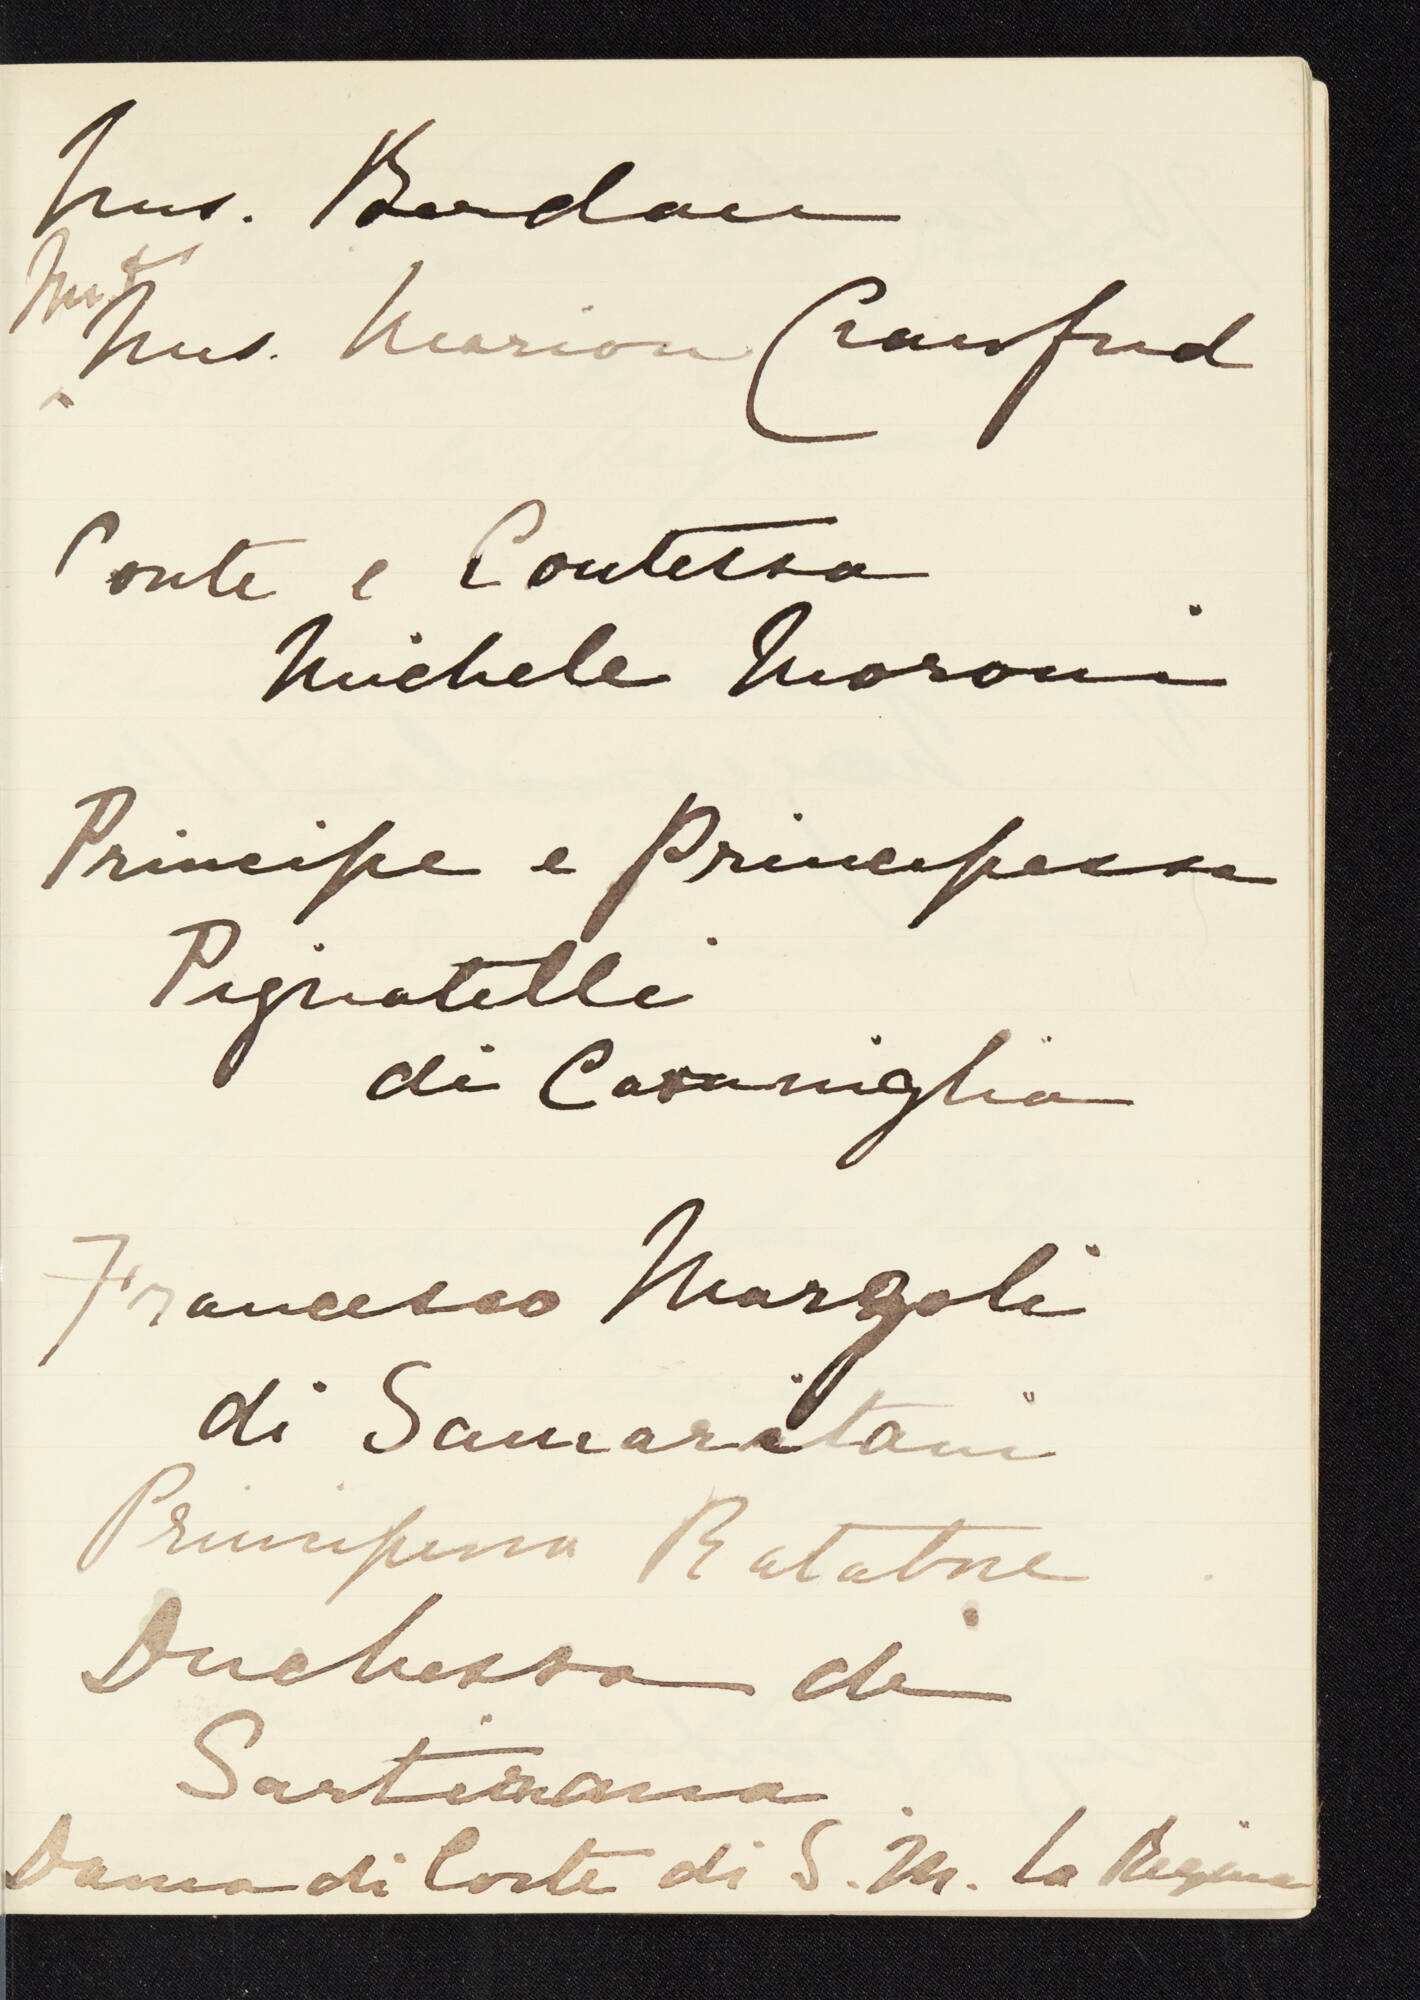 Mrs. Berdan
Mr &
Mrs. Marion Crawford
Conte e Contessa
Michele Moroni
Principe e Principessa
Pignatelli
di Casaniglia
Francesco Margoli
di Samaritani
Principessa
Duchessa di
Sartirana
Dama di Corte di S. M. La Regina